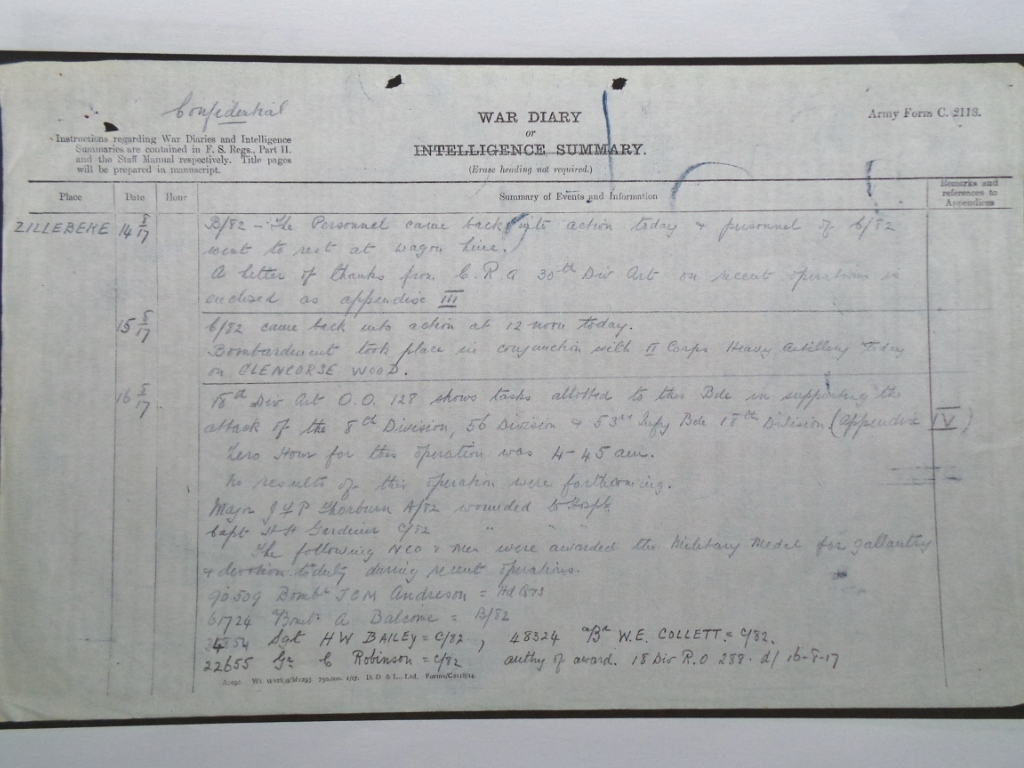 Confidential
WAR DIARY
or
INTELLIGENCE SUMMARY.
(Erase heading not required.)
Army Form C. 2118.
Instructions regarding War Diaries and Intelligence
Summaries are contained in F. S. Regs., Part II.
and the Staff Manual respectively. Title pages
will be prepared in manuscript.
Place Date Hour Summary of Events and Information Remarks and
references to
Appendices
ZILLEBEKE 14 8/17 B/82 - The Personnel came back into action today & personnel of C/82
went to rest at wagon line.
A letter of thanks from C.R.A 30th Div Art on recent operations is
enclosed as appendix III
15 8/17 C/82 came back into action at 12 noon today.
Bombardment took place in conjunction with II Corps Heavy Artillery today
on GLENCORSE WOOD.
16 8/17 18th Div Art O.O. 128 shows tasks allotted to this Bde in supporting the
attack of the 8th Division, 56 Division & 53rd Infy Bde 18th Division (Appendix IV)
Zero Hour for this operation was 4-45 am.
No results of this operation were forthcoming.
Major Thorburn A/82 wounded to Hosp.
Capt Gardiner C/82 " " "
The following NCO & Men were awarded the Military Medal for gallantry
& devotion to duty during recent operations.
90509 Bombr J C M Andreson = Hd Qrs
61724 Bombr A Balcome = B/82
Sgt H W BAILEY = C/82, 48324 a/Br W.E. COLLETT = C/82.
22655 Gr C Robinson = C/82 authy of award. 18 Div R.O 288. d/ 16-8-17
D. D. & L., Ltd. Forms/C2118/14